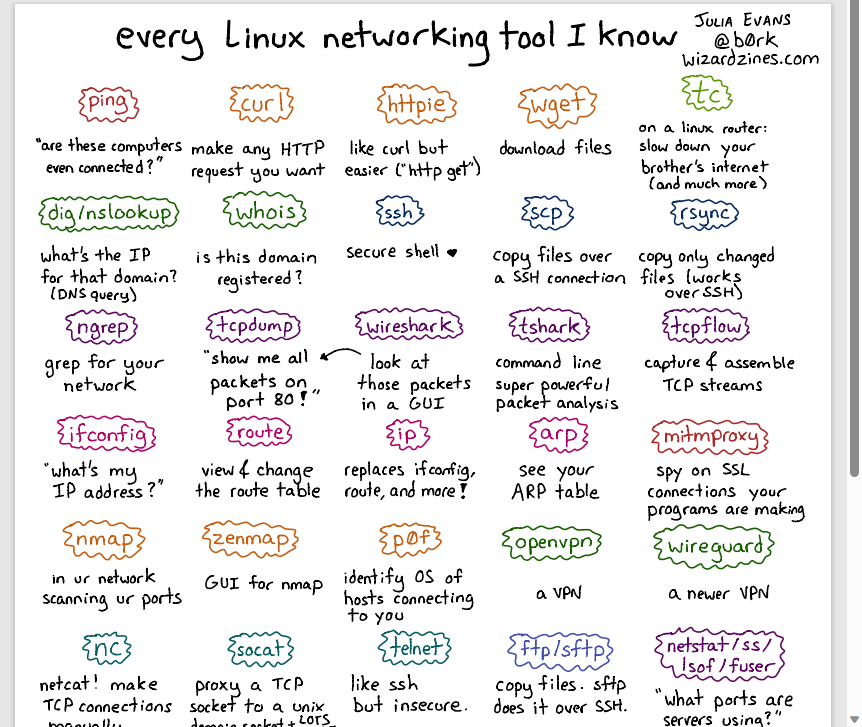 every Linux networking tool I know
JULIA EVANS
@b0rk
wizardzines.com
ping
"are these computers
even connected?"
curl
make any HTTP
request you want
httpie
like curl but
easier ("http get")
wget
download files
tc
on a linux router:
slow down your
brother's internet
(and much more)
dig/nslookup
what's the IP
for that domain?
(DNS query)
whois
is this domain
registered?
ssh
secure shell ♥
scp
copy files over
a SSH connection
rsync
copy only changed
files (works
over SSH)
ngrep
grep for your
network
tcpdump
"show me all
packets on
port 80!"
wireshark
look at
those packets
in a GUI
tshark
command line
super powerful
packet analysis
tcpflow
capture & assemble
TCP streams
ifconfig
"what's my
IP address?"
route
view & change
the route table
ip
replaces ifconfig,
route, and more!
arp
see your
ARP table
mitmproxy
spy on SSL
connections your
programs are making
nmap
in ur network
scanning ur ports
zenmap
GUI for nmap
p0f
identify OS of
hosts connecting
to you
openvpn
a VPN
wireguard
a newer VPN
nc
netcat! make
TCP connections
manually
socat
proxy a TCP
socket to a unix
domain socket + LOTS
telnet
like ssh
but insecure.
ftp/sftp
copy files. sftp
does it over SSH.
netstat/ss/
lsof/fuser
"what ports are
servers using?"